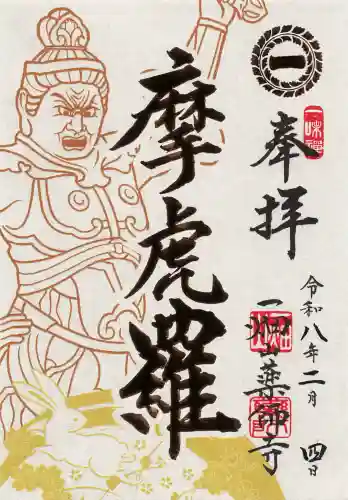 一
一味禅
奉拝
摩虎羅
令和八年二月四日
一畑山薬師寺